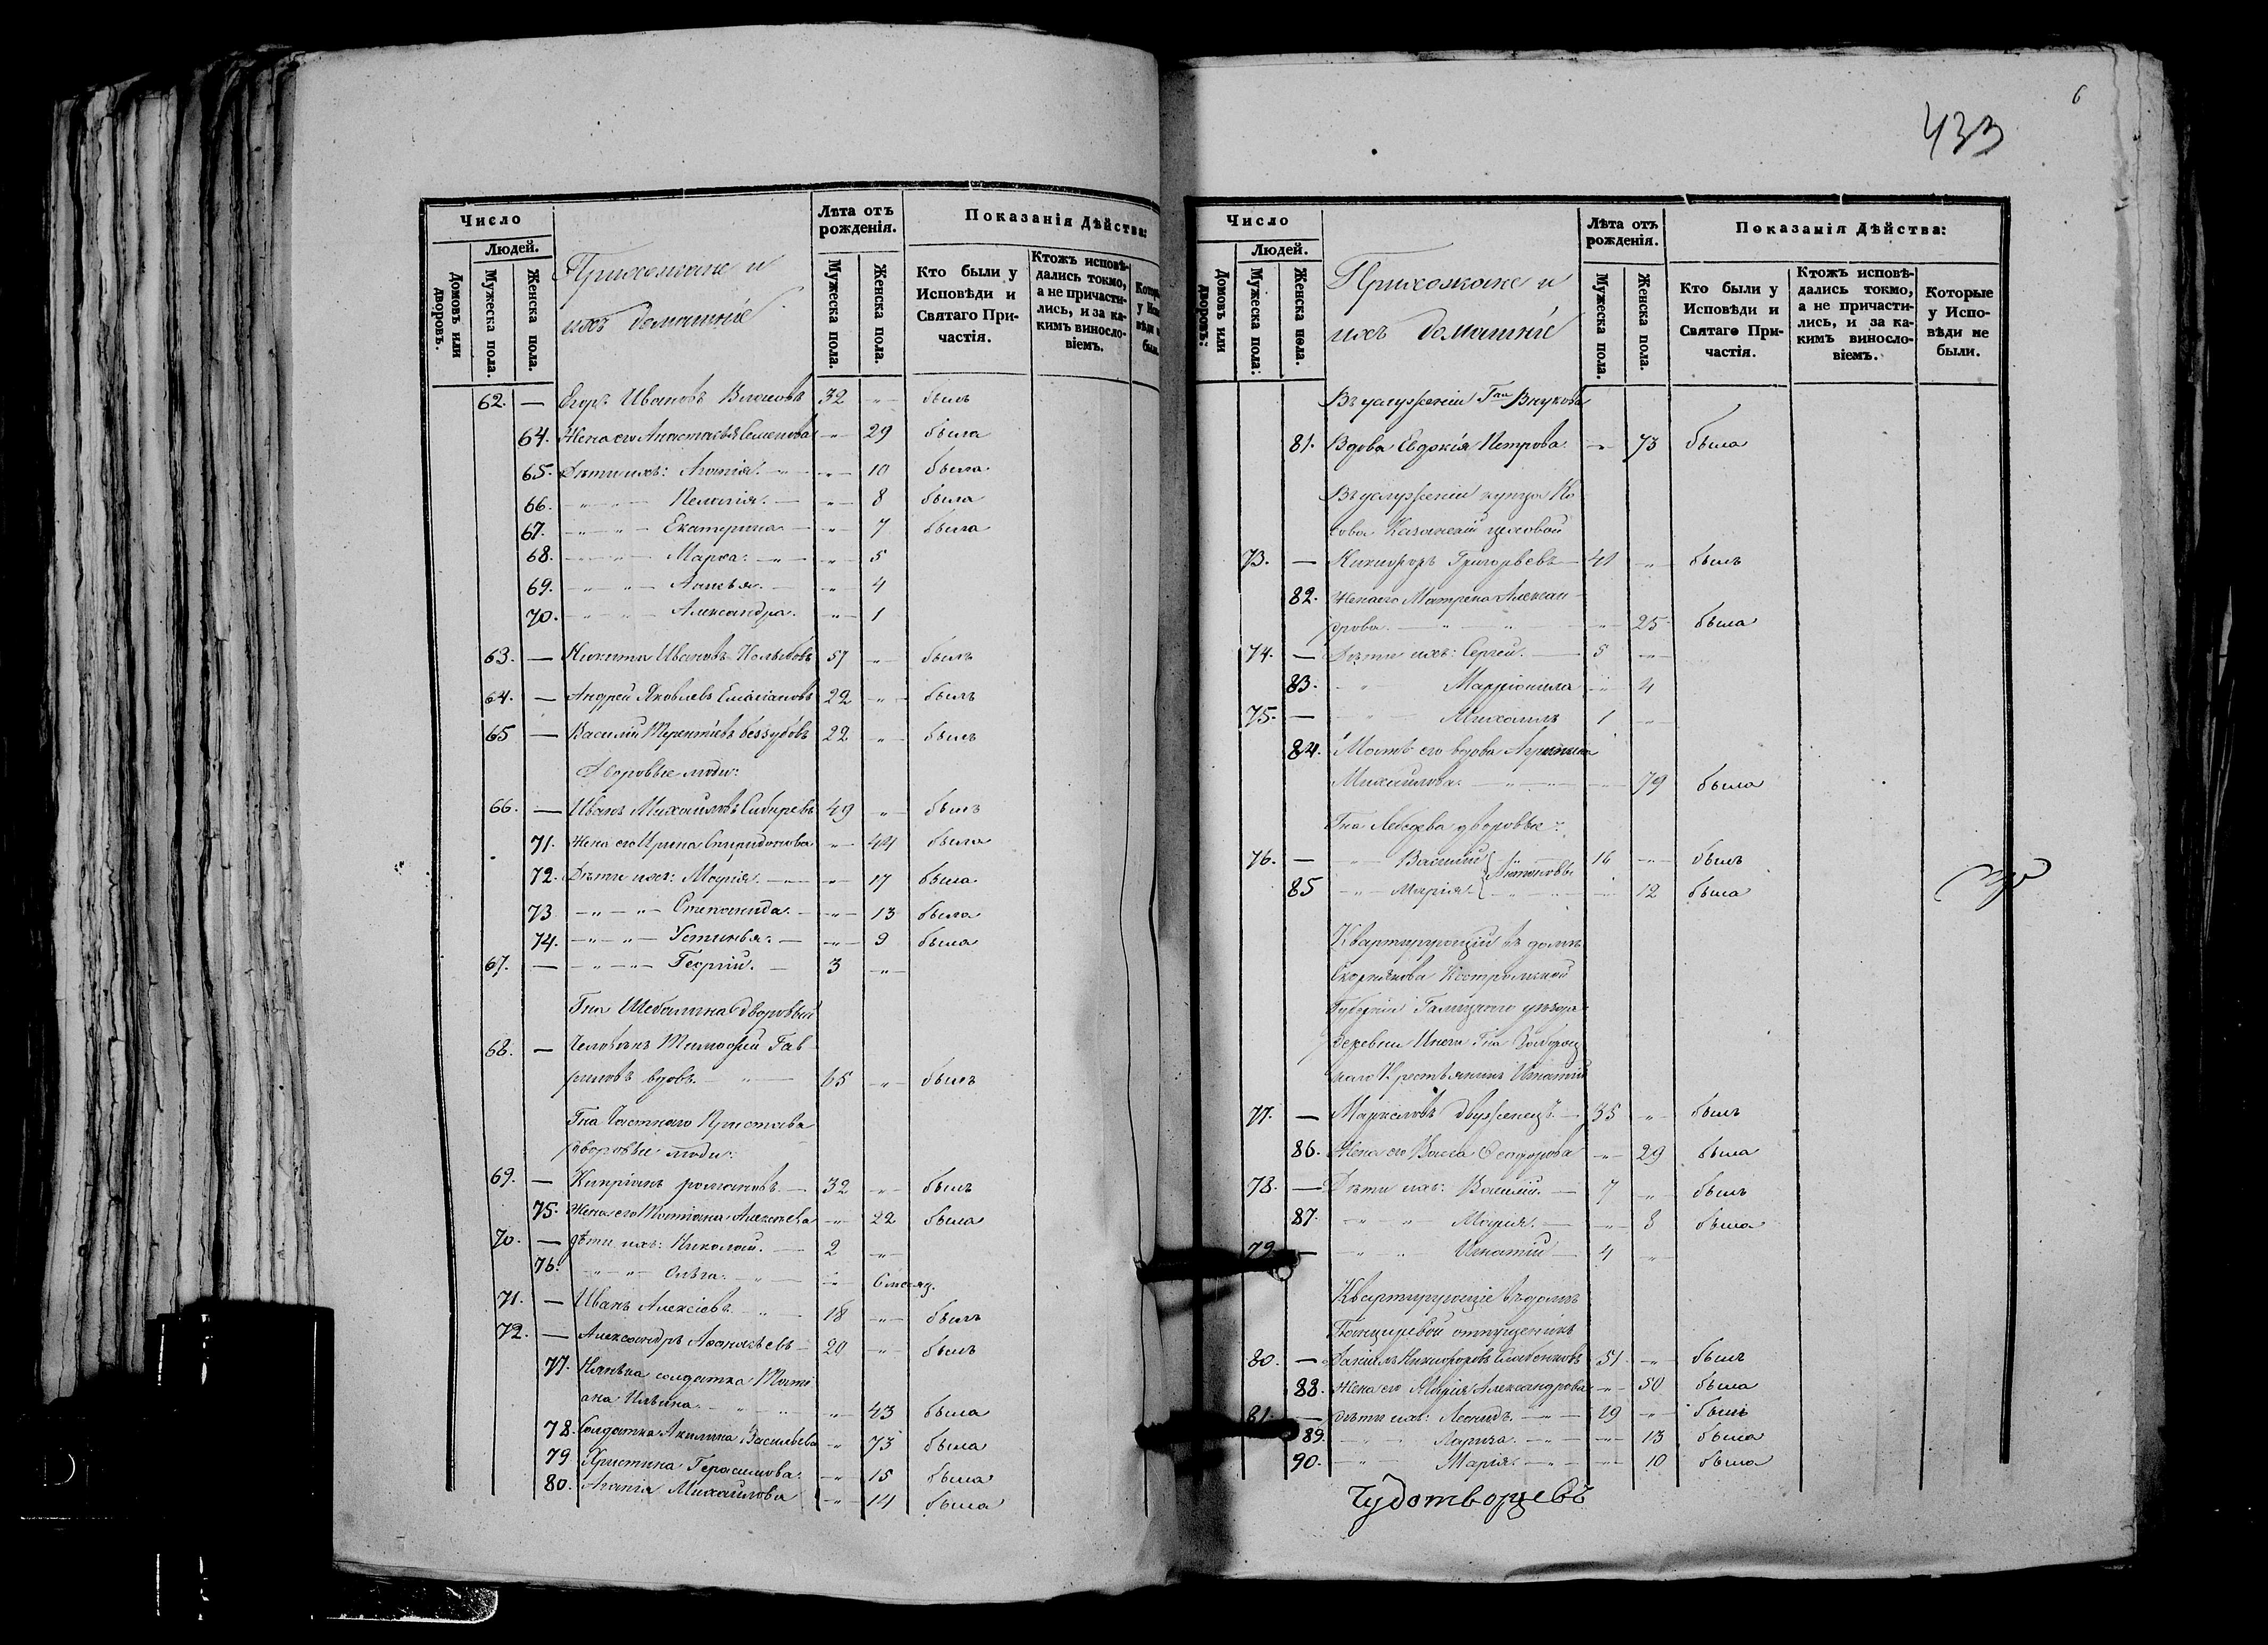 Число
Людей.
Домовъ или дворовъ.
Мужеска пола.
Женска пола.
Прихожане и
ихъ домашніе
Лѣта отъ рожденія.
Мужеска пола.
Женска пола.
Показанія Дѣйства:
Кто были у Исповѣди и Святаго Причастія.
Ктожъ исповѣдались токмо, а не причастились, и за какимъ винословіемъ.
62. — Егоръ Ивановъ 32 -"- былъ
64. Жена его Анастасья Семенова -"- 29 была
65. Дѣти ихъ: Агапія. -"- 10 была
66. Пелагія. -"- 8 была
67. Екатерина -"- 7 была
68. Марѳа. -"- 5
69. -"- 4
70. Александра. -"- 1
63. — Никита Ивановъ 57 -"- былъ
64. — Андрей Яковлевъ Емаліановъ 22 -"- былъ
65 — Василій Терентіевъ Беззубовъ 22 -"- былъ
Дворовые люди:
66. — Иванъ Михайловъ Сибиревъ 49 -"- былъ
71. Жена его Ирина Спиридонова -"- 44 была
72. Дѣти ихъ: Марія. -"- 17 была
73 Степанида. -"- 13 была
74. Устинья. -"- 9 была
67. — Георгій. 3 -"-
Гна Шебалина дворовый
68. — Человѣкъ Тимоѳей Гав-
риловъ вдовъ. 65 -"- былъ
Гна Частнаго Пристава
дворовые люди:
69. — Кипріанъ романовъ. 32 -"- былъ
75. Жена его Татіана Алексѣева -"- 22 была
70. — дѣти ихъ: Николай. 2 -"-
76. Ольга. -"- 6 месяц.
71. — Иванъ Алексіевъ 18 -"- былъ
72. — Александръ Аѳанасьевъ 20 -"- былъ
77. Нянька солдатка Тати-
ана Ильина. -"- 43 была
78. Солдатка Акилина Васильева -"- 73 была
79 Христина Герасимова. -"- 15 была
80. Агапія Михайлова -"- 14 была
6
433
Число
Людей.
Домовъ или дворовъ:
Мужеска пола:
Женска пола.
Прихожане и
ихъ домашніе
Лѣта отъ рожденія.
Мужеска пола.
Женска пола.
Показанія Дѣйства:
Кто были у Исповѣди и Святаго Причастія.
Ктожъ исповѣдались токмо, а не причастились, и за какимъ винословіемъ.
Которые у Исповѣди не были.
Въ услуженіи Гжи Внукова
81. Вдова Евдокія Петрова. -"- 73 была
Въ услуженіи купца Ко
сова Казанскій цеховой
73. — Никифоръ Григорьевъ 41 -"- былъ
82. Жена его Матрена Алексан-
дрова. -"- 25 была
74. — Дѣти ихъ: Сергей. 5 -"-
83. -"- 4
75. — Михаилъ 1 -"-
84. Мать его вдова Агрипина
Михайлова. -"- 79 была
Гна Лебедева дворовые:
76. — Василій 16 -"- былъ
85 Марія Антоновы 12 была
Квартирующій въ домѣ
Скорнякова Костромской
Губерніи Галицкаго уѣзда
деревни Гна
наго Крестьянинъ Игнатій
77. — Маркеловъ двуженецъ 35 -"- былъ
86. Жена его Васса Ѳеодорова -"- 29 была
78. — Дѣти ихъ: Василій. 7 -"- былъ
87. Марія. -"- 8 была
79 — Игнатій 4 -"-
Квартирующіе въ домѣ
отпущеникъ
80. — Данилъ Никифоровъ 51 -"- былъ
88. Жена его Марія Александрова -"- 50 была
81. — дѣти ихъ: Леонидъ. 19 -"- былъ
89. Лариса. -"- 13 была
90. Марія. -"- 10 была
Чудотворцевъ